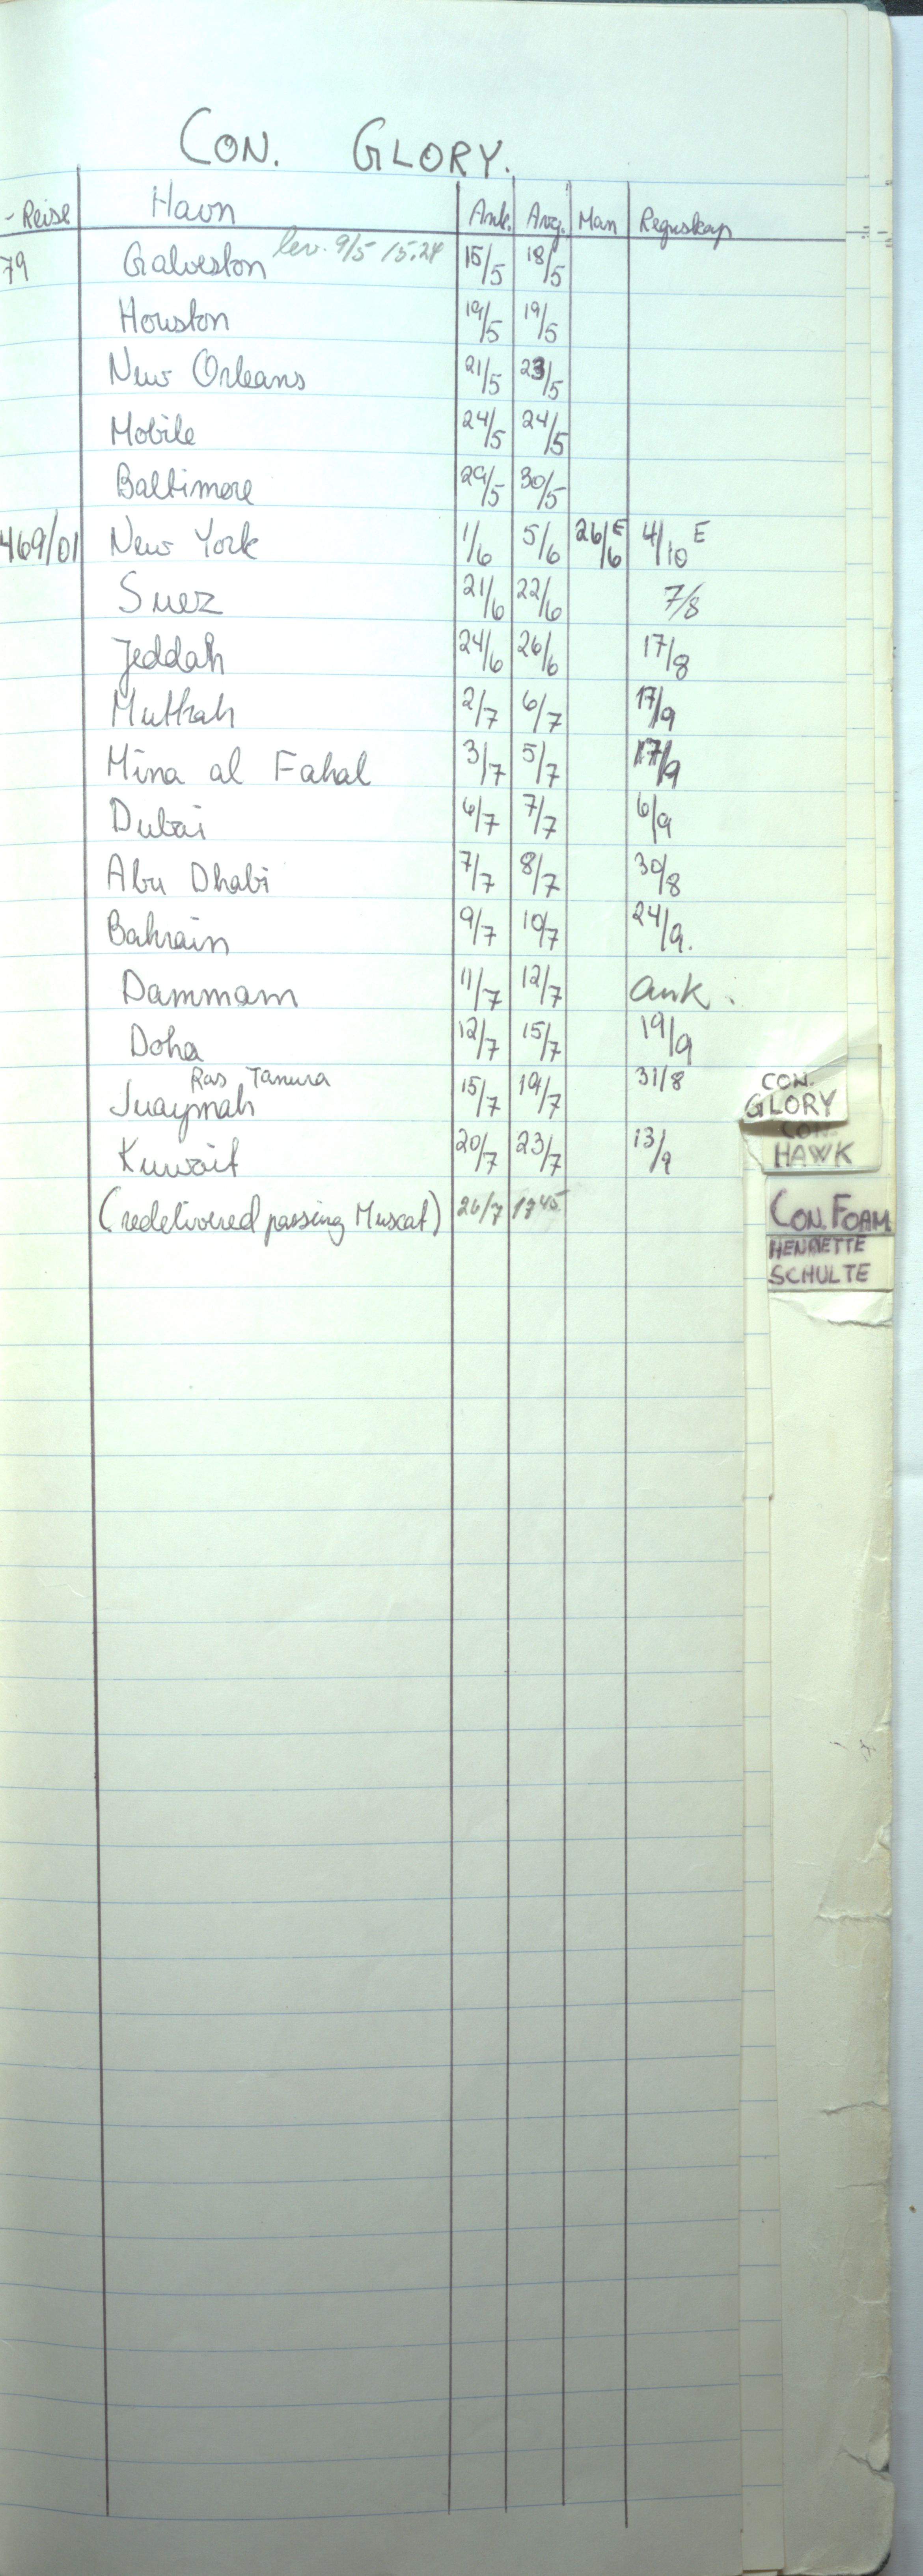 CON. GLORY.
- Reise Havn Ank. Avg. Man Regnskap
79 Galveston lev. 9/5 15.24 15/5 18/5
Houston 19/5 19/5
New Orleans 21/5 23/5
Mobile 24/5 24/5
Baltimore 29/5 30/5
469/01 New York 1/6 5/6 26/6 E 4/10 E
Suez 21/6 22/6 7/8
Jeddah 24/6 26/6 17/8
Muttrah 2/7 6/7 17/9
Mina al Fahal 3/7 5/7 17/9
Dubai 6/7 7/7 6/9
Abu Dhabi 7/7 8/7 30/8
Bahrain 9/7 10/7 24/9.
Dammam 11/7 12/7 ank.
Doha 12/7 15/7 19/9
Ras Tanura
Juaymah 15/7 19/7 31/8
Kuwait 20/7 23/7 13/9
(redelivered passing Muscat) 26/7 1745
CON.
GLORY
CON.
HAWK
CON. FOAM
HENRIETTE
SCHULTE